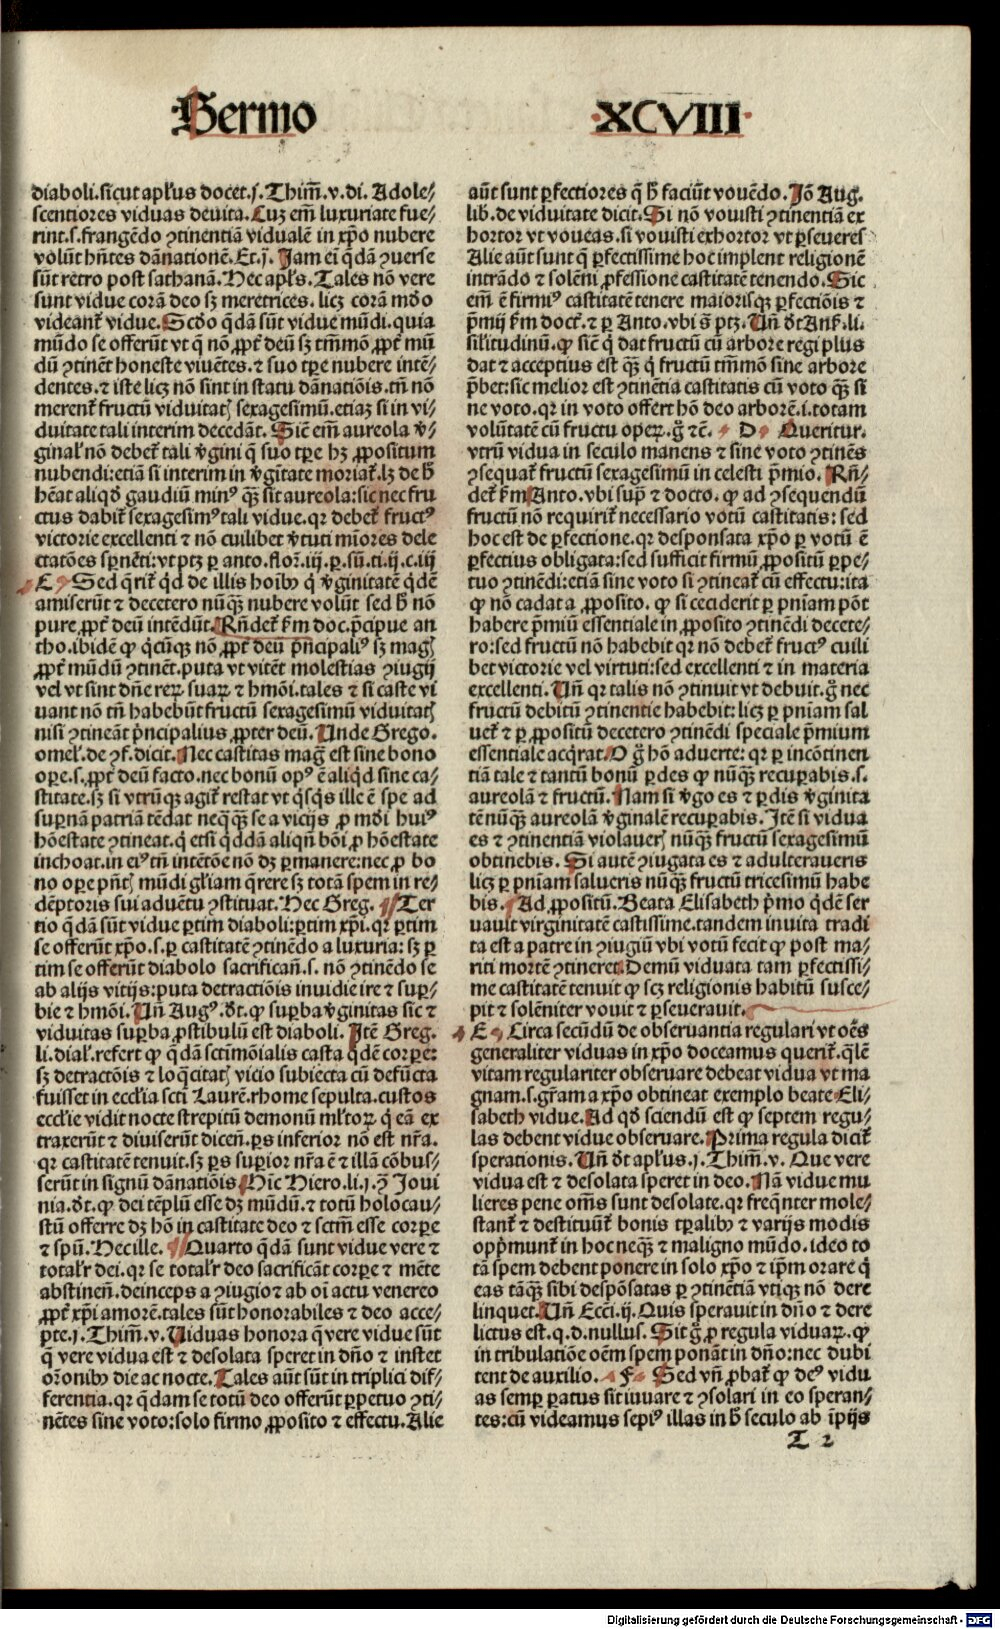 Sermo XCVIII
diaboli. sicut apl'us docet .j. Thim̄. v. di. Adole/
scentiores viduas deuita. Cuz em̄ luxuriate fue/
rint. s. frangēdo ꝯtinentiā vidualē in xp̄o nubere
volūt hn̄tes dānationē. Et .j. Jam ei q̄dā ꝯuerse
sūt retro post sathanā. Hec apl's. Tales nō vere
sunt vidue corā deo sꝫ meretrices. licꝫ corā mūdo
videant᷑ vidue. Scdo q̄dā sūt vidue mūdi. quia
mūdo se offerūt vt q̄ nō ꝓpt᷑ deū sꝫ tm̄mō ꝓpt᷑ mū
dū ꝯtinēt honeste viuētes. ⁊ suo tꝑe nubere intē/
dentes. ⁊ iste licꝫ nō sint in statu dānatiōis. tn̄ nō
merent᷑ fructū viduitatꝭ sexagesimū. etiaꝫ si in vi/
duitate tali interim decedāt. Sic̄ em̄ aureola v̄/
ginal' nō debet᷑ tali v̄gini q̄ suo tꝑe hꝫ ꝓpositum
nubendi: etiā si interim in v̄gītate moriat᷑. lꝫ de h̄
hēat aliqd̄ gaudiū minꝰ qꝫ̄ sit aureola: sic nec fru
ctus dabit᷑ sexagesimꝰ tali vidue. qr debet᷑ fructꝰ
victorie excellenti ⁊ nō cuilibet v̄tuti mīores dele
ctatōes spn̄ēti: vt ptꝫ ꝑ anto. flor. iij. p. sū. ti. ij. c. iij
C Sed q̄rit᷑ qd̄ de illis hoībꝰ q̄ v̄ginitatē q̄dē
amiserūt ⁊ decetero nūqꝫ̄ nubere volūt sed h̄ nō
pure ꝓpt᷑ deū intēdūt. Rn̄det᷑ ẜm doc. p̄cipue an
tho. ibidē ꝙ q̄cūqꝫ nō ꝓpt᷑ deū p̄ncipaliꝰ sꝫ magꝭ
ꝓpt᷑ mūdū ꝯtinēt. puta vt vitēt molestias ꝯiugij
vel vt sint dn̄e reꝝ suaꝝ ⁊ hmōi. tales ⁊ si caste vi
uant nō tn̄ habebūt fructū sexagesimū viduitatꝭ
nisi ꝯtineāt p̄ncipalius ꝓpter deū. Unde Grego.
omel'. de ꝯf. dicit. Nec castitas maḡ est sine bono
oꝑe. s. ꝓpt᷑ deū facto. nec bonū opꝰ ē aliqd̄ sine ca/
stitate. sꝫ si vtrūqꝫ agit᷑ restat vt q̄sq̄s ille ē spe ad
suꝑnā patriā tēdat neqꝫ̄ se a vicijs ꝓ mūdi huiꝰ
hōestate ꝯtineat. q̄ etsi q̄ddā aliqn̄ bōi ꝓ hōestate
inchoat. in eiꝰ tn̄ intētōe nō dꝫ ꝑmanere: nec ꝓ bo
no oꝑe pn̄tꝭ mūdi gl'iam q̄rere sꝫ totā spem in re/
dēptoris sui aduētu ꝯstituat. Hec Greg. Ter
tio q̄dā sūt vidue ꝑtim diaboli: ꝑtim xp̄i. qr ꝑtim
se offerūt xp̄o. s. ꝑ castitatē ꝯtinēdo a luxuria: sꝫ ꝑ
tim se offerūt diabolo sacrifican̄. s. nō ꝯtinēdo se
ab alijs vitijs: puta detractiōis inuidie ire ⁊ suꝑ/
bie ⁊ hmōi. Un̄ Augꝰ. d̄t. ꝙ suꝑba v̄ginitas sic ⁊
viduitas suꝑba ꝓstibulū est diaboli. Itē Greg.
li. dial'. refert ꝙ q̄dā sctīmōialis casta q̄dē corꝑe:
sꝫ detractōis ⁊ loq̄citatꝭ vicio subiecta cū defūcta
fuisset in eccl'ia scti Laurē. rhome sepulta. custos
eccl'ie vidit nocte strepitū demonū ml'toꝝ q̄ eā ex
traxerūt ⁊ diuiserūt dicen̄. ꝑs inferior nō est nr̄a.
qr castitatē tenuit. sꝫ ꝑs suꝑior nr̄a ē ⁊ illā cōbus/
serūt in signū dānatiōis. Hic Hiero. li. j. ꝯ̄ Joui
nia. d̄t. ꝙ dei tēplū esse dꝫ mūdū. ⁊ totū holocau/
stū offerre dꝫ hō in castitate deo ⁊ sctm̄ esse corꝑe
⁊ spū. Hec ille. Quarto q̄dā sunt vidue vere ⁊
total'r dei. qr se total'r deo sacrificāt corꝑe ⁊ mēte
abstinen̄. deinceps a ꝯiugio ⁊ ab oī actu venereo
ꝓpt᷑ xp̄i amorē. tales sūt honorabiles ⁊ deo acce/
pte. j. Thim̄. v. Uiduas honora q̄ vere vidue sūt
q̄ vere vidua est ⁊ desolata speret in dn̄o ⁊ instet
or̄onibꝰ die ac nocte. Tales aūt sūt in triplici dif/
ferentia. qr q̄dam se totū deo offerūt ꝑpetuo ꝯti/
nētes sine voto: solo firmo ꝓposito ⁊ effectu. Alie
aūt sunt ꝑfectiores q̄ h̄ faciūt vouēdo. Jō Aug.
lib. de viduitate dicit. Si nō vouisti ꝯtinentiā ex
hortor vt voueas. si vouisti exhortor vt ꝑseueres
Alie aūt sunt q̄ ꝑfectissime hoc implent religionē
intrādo ⁊ solēni ꝓfessione castitatē tenendo. Sic
em̄ ē firmiꝰ castitatē tenere maiorisqꝫ ꝑfectiōis ⁊
p̄mij ẜm doct᷑. ⁊ ꝑ Anto. vbi s̄ ptꝫ. Un̄ d̄t Ans̄. li.
sil'itudinū. ꝙ sic̄ q̄ dat fructū cū arbore regi plus
dat ⁊ acceptius est qꝫ̄ q̄ fructū tm̄mō sine arbore
p̄bet: sic melior est ꝯtinētia castitatis cū voto qꝫ̄ si
ne voto. qr in voto offert hō deo arborē. i. totam
volūtatē cū fructu oꝑeꝝ. g̊ ⁊c̄. D Queritur.
vtrū vidua in seculo manens ⁊ sine voto ꝯtinēs
ꝯsequat᷑ fructū sexagesimū in celesti p̄mio. Rn̄/
det᷑ ẜm Anto. vbi supͣ ⁊ docto. ꝙ ad ꝯsequendū
fructū nō requirit᷑ necessario votū castitatis: sed
hoc est de ꝑfectione. qr desponsata xp̄o ꝑ votū ē
ꝑfectius obligata: sed sufficit firmū ꝓpositū ꝑpe/
tuo ꝯtinēdi: etiā sine voto si ꝯtineat᷑ cū effectu: ita
ꝙ nō cadat a ꝓposito. ꝙ si ceciderit ꝑ pn̄iam pōt
habere p̄miū essentiale in ꝓposito ꝯtinēdi decete/
ro: sed fructū nō habebit qr nō debet᷑ fructꝰ cuili
bet victorie vel virtuti: sed excellenti ⁊ in materia
excellenti. Un̄ qr talis nō ꝯtinuit vt debuit. g̊ nec
fructū debitū ꝯtinentie habebit: licꝫ ꝑ pn̄iam sal
uet᷑ ⁊ ꝑ ꝓpositū decetero ꝯtinēdi speciale p̄mium
essentiale acq̄rat. O g̊ hō aduerte: qr ꝑ incōtinen
tiā tale ⁊ tantū bonū ꝑdes ꝙ nūqꝫ̄ recuꝑabis. s.
aureolā ⁊ fructū. Nam si v̄go es ⁊ ꝑdis v̄ginita
tē nūqꝫ̄ aureolā v̄ginalē recuꝑabis. Itē si vidua
es ⁊ ꝯtinentiā violauerꝭ nūqꝫ̄ fructū sexagesimū
obtinebis. Si autē ꝯiugata es ⁊ adulteraueris
licꝫ ꝑ pn̄iam salueris nūqꝫ̄ fructū tricesimū habe
bis. Ad ꝓpositū. Beata Elisabeth p̄mo q̄dē ser
uauit virginitatē castissime. tandem inuita tradi
ta est a patre in ꝯiugiū vbi votū fecit ꝙ post ma/
riti mortē ꝯtineret. Demū viduata tam ꝑfectissi/
me castitatē tenuit ꝙ scꝫ religionis habitū susce/
pit ⁊ solēniter vouit ⁊ ꝑseuerauit.
E Circa secūdū de obseruantia regulari vt oēs
generaliter viduas in xp̄o doceamus querit᷑. q̄lē
vitam regulariter obseruare debeat vidua vt ma
gnam. s. gr̄am a xp̄o obtineat exemplo beate Eli/
sabeth vidue. Ad qd̄ sciendū est ꝙ septem regu/
las debent vidue obseruare. Prima regula dicit᷑
sperationis. Un̄ d̄t apl'us. j. Thim̄. v. Que vere
vidua est ⁊ desolata speret in deo. Nā vidue mu
lieres pene om̄s sunt desolate. qr freq̄nter mole/
stant᷑ ⁊ destituūt᷑ bonis tꝑalibꝰ ⁊ varijs modis
opp̄munt᷑ in hoc neqꝫ̄ ⁊ maligno mūdo. ideo to
tā spem debent ponere in solo xp̄o ⁊ ip̄m orare q̄
eas tāqꝫ̄ sibi despōsatas ꝑ ꝯtinētiā vtiqꝫ nō dere
linquet. Un̄ Ecci. ij. Quis sperauit in dn̄o ⁊ dere
lictus est. q. d. nullus. Sit g̊ ꝓ regula viduaꝝ. ꝙ
in tribulatiōe oēm spem ponāt in dn̄o: nec dubi
tent de auxilio. F Sed vn̄ ꝓbat᷑ ꝙ deꝰ vidu
as semꝑ ꝑatus sit iuuare ⁊ ꝯsolari in eo speran/
tes: cū videamus sepiꝰ illas in h̄ seculo ab īpijs
T 2
Digitalisierung gefördert durch die Deutsche Forschungsgemeinschaft - DFG